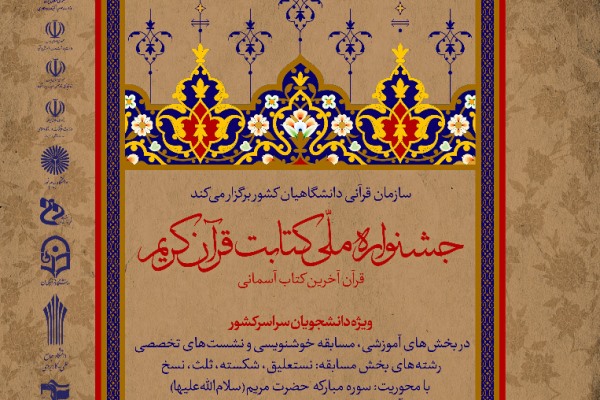 سازمان قرآنی دانشگاهیان کشور برگزار می‌کند
جشنواره ملّی کتابت قرآن کریم
قرآن آخرین کتاب آسمانی
ویژه دانشجویان سراسر کشور
در بخش‌های آموزشی، مسابقه خوشنویسی و نشست‌های تخصصی
رشته‌های بخش مسابقه: نستعلیق، شکسته، ثلث، نسخ
با محوریت: سوره مبارکه حضرت مریم (سلام‌الله‌علیها)